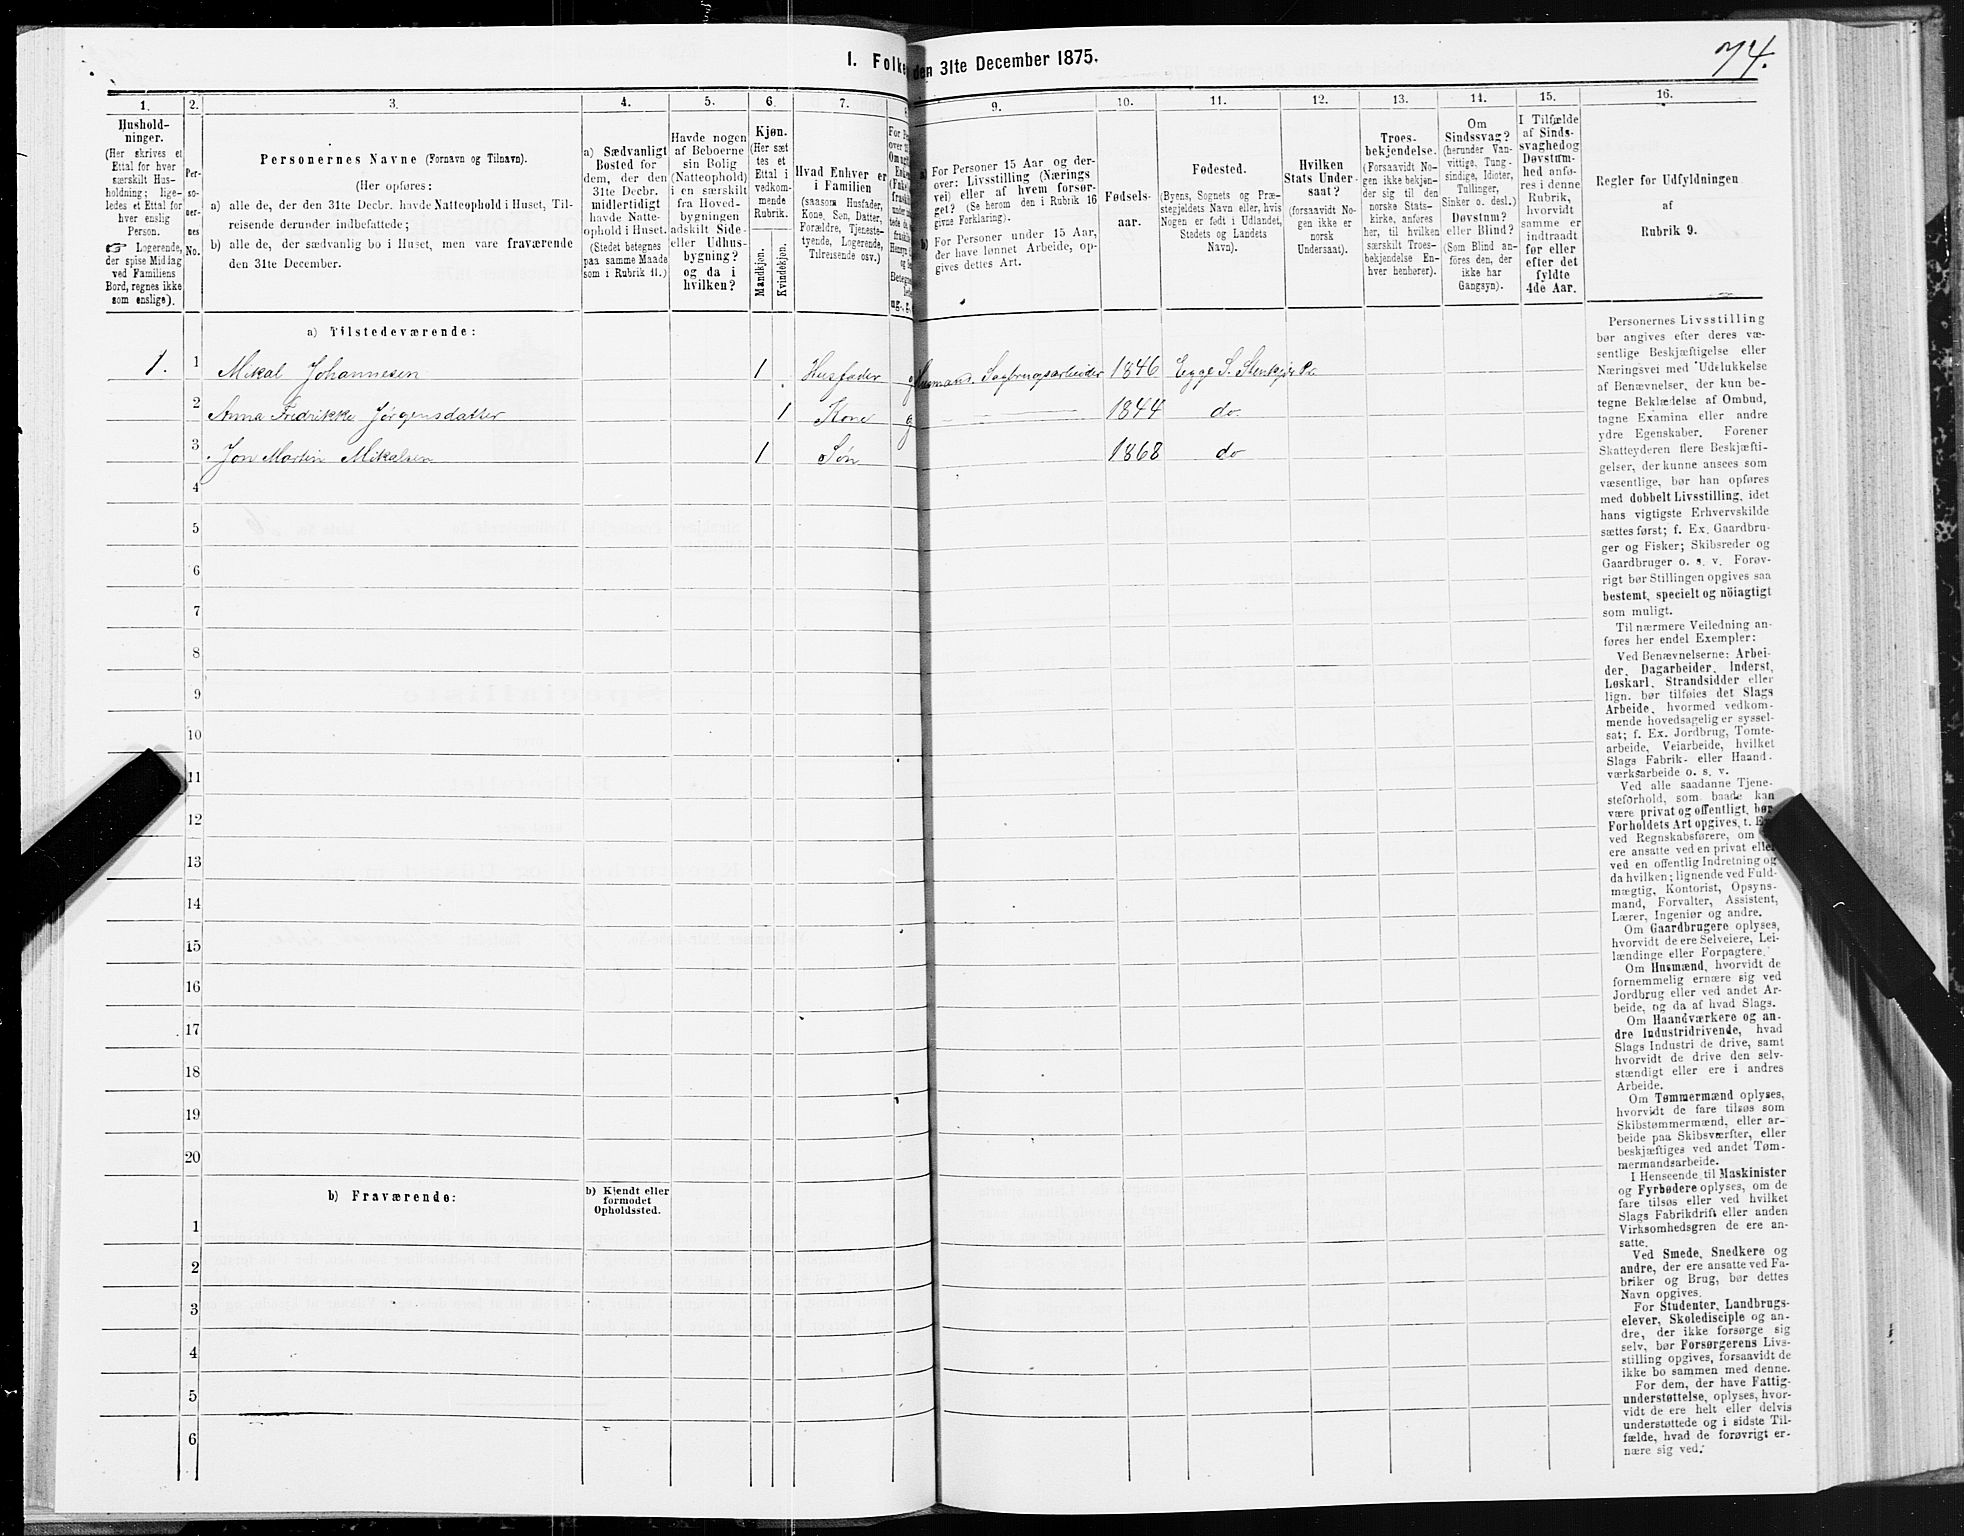 74.
1. Folke den 31te December 1875.
1. 2. 3. 4. 5. 6. 7. 8 9. 10. 11. 12. 13. 14. 15. 16.
Hushold-
ninger.
(Her skrives et
Ettal for hver
særskilt Hus-
holdning; lige-
ledes et Ettal for
hver enslig
Person.
☞ Logerende,
der spise Middag
ved Familiens
Bord, regnes ikke
som enslige).
Per-
so-
ner-
nes
No.
Personernes Navne (Fornavn og Tilnavn).
(Her opføres:
a) alle de, der den 31te Decbr. havde Natteophold i Huset, Til-
reisende derunder indbefattede;
b) alle de, der sædvanlig bo i Huset, men vare fraværende
den 31te December.
a) Sædvanligt
Bosted for
dem, der den
31te Decbr.
midlertidigt
havde Natte-
ophold i Huset.
(Stedet betegnes
paa samme Maade
som i Rubrik 11.)
Havde nogen
af Beboerne
sin Bolig
(Natteophold)
i en særskilt
fra Hoved-
bygningen
adskilt Side-
eller Udhus-
bygning?
og da i
hvilken?
Kjøn.
(Her sæt
tes et
Ettal i
vedkom-
mende
Rubrik.
Mandkjøn.
Kvindekjøn.
Hvad Enhver er
i Familien
(saasom Husfader,
Kone, Søn, Datter,
Forældre, Tjeneste-
tyende, Logerende,
Tilreisende osv.)
a) For Personer 15 Aar og der-
over: Livsstilling (Nærings
vei) eller af hvem forsør-
get? (Se herom den i Rubrik 16
givne Forklaring).
b) For Personer under 15 Aar,
der have lønnet Arbeide, op-
gives dettes Art.
Fødsels-
aar.
Fødested.
(Byens, Sognets og Præ-
stegjeldets Navn eller, hvis
Nogen er født i Udlandet,
Stedets og Landets
Navn).
Hvilken
Stats Under-
saat?
(forsaavidt No-
gen ikke er
norsk
Undersaat).
Troes-
bekjendelse.
(Forsaavidt No-
gen ikke bekjen-
der sig til den
norske Stats-
kirke, anføres
her, til hvilken
særskilt Troes-
bekjendelse En-
hver henhører).
Om
Sindssvag?
(herunder Van-
vittige, Tung-
sindige, Idioter,
Tullinger,
Sinker o. desl.)
Døvstum?
eller Blind?
(Som Blind an-
føres den, der
ikke har
Gangsyn).
I Tilfælde
af Sinds-
svaghed og
Døvstum-
hed anfø-
res i denne
Rubrik,
hvorvidt
samme er
indtraadt
før eller
efter det
fyldte
4de Aar.
Regler for Udfyldningen
af
Rubrik 9.
a) Tilstedeværende:
1. 1 Mikal Johannesen 1 Husfader g Husmands. Sagbrugsarbeider 1846 Egge S. Stenkjær Pr.
2 Anna Fredrikke Jørgensdatter 1 Kone g 1844 do.
3 Jon Martin Mikalsen 1 Søn 1868 do
4
5
6
7
8
9
10
11
12
13
14
15
16
17
18
19
20
b) Fraværende:
b) Kjendt eller
formodet
Opholdssted.
1
2
3
4
5
6
Personernes Livsstilling
bør angives efter deres væ-
sentlige Beskjæftigelse eller
Næringsvei med Udelukkelse
af Benævnelser, der kun be-
tegne Beklædelse af Ombud,
tagne Examina eller andre
ydre Egenskaber. Forener
Skatteyderen flere Beskjæfti-
gelser, der kunne ansees som
væsentlige, bør han opføres
med dobbelt Livsstilling, idet
hans vigtigste Erhvervskilde
sættes først; f. Ex. Gaardbru-
ger og Fisker; Skibsreder og
Gaardbruger o. s. v. Forøv-
rigt bør Stillingen opgives saa
bestemt, specielt og nöiagtigt
som muligt.
Til nærmere Veiledning an-
føres her endel Exempler:
Ved Benævnelserne: Arbei-
der, Dagarbeider, Inderst,
Løskarl, Strandsidder eller
lign. bør tilføies det Slags
Arbeide, hvormed vedkom-
mende hovedsagelig er syssel-
sat; f. Ex. Jordbrug, Tomte-
arbeide, Veiarbeide, hvilket
Slags Fabrik- eller Haand-
værksarbeide o. s. v.
Ved alle saadanne Tjene-
steforhold, som baade kan
være privat og offentligt, bør
Forholdets Art opgives, t. Ex.
ved Regnskabsførere, om
ere ansatte ved en privat eller
ved en offentlig Indretning og
da hvilken; lignende ved Fuld-
mægtig, Kontorist, Opsyns-
mand, Forvalter, Assistent,
Lærer, Ingeniør og andre.
Om Gaardbrugere oplyses,
hvorvidt de ere Selveiere, Lei-
lændinge eller Forpagtere.
Om Husmænd, hvorvidt de
fornemmelig ernære sig ved
Jordbrug eller ved andet Ar-
beide, og da af hvad Slags.
Om Haandværkere og an-
dre Industridrivende, hvad
Slags Industri de drive, samt
hvorvidt de drive den selv-
stændigt eller ere i andres
Arbeide.
Om Tømmermænd oplyses,
hvorvidt de fare tilsøs som
Skibstømmermænd, eller ar-
beide paa Skibsværfter, eller
beskjæftiges ved andet Tøm-
mermandsarbeide.
I Henseende til Maskinister
og Fyrbødere oplyses, om de
fare tilsøs eller ved hvilket
Slags Fabrikdrift eller anden
Virksomhedsgren de ere an-
satte.
Ved Smede, Snedkere og
andre, der ere ansatte ved Fa-
briker og Brug, bør dettes
Navn opgives.
For Studenter, Landbrugs-
elever, Skoledisciple og an-
dre, der ikke forsørge sig
selv, bør Forsørgerens Livs-
stilling opgives, forsaavidt de
ikke bo sammen med denne.
For dem, der have Fattig-
understøttelse, oplyses, hvor-
vidt de ere helt eller delvis
understøttede og i sidste Til-
fælde, hvad de forøvrigt er-
nære sig ved.